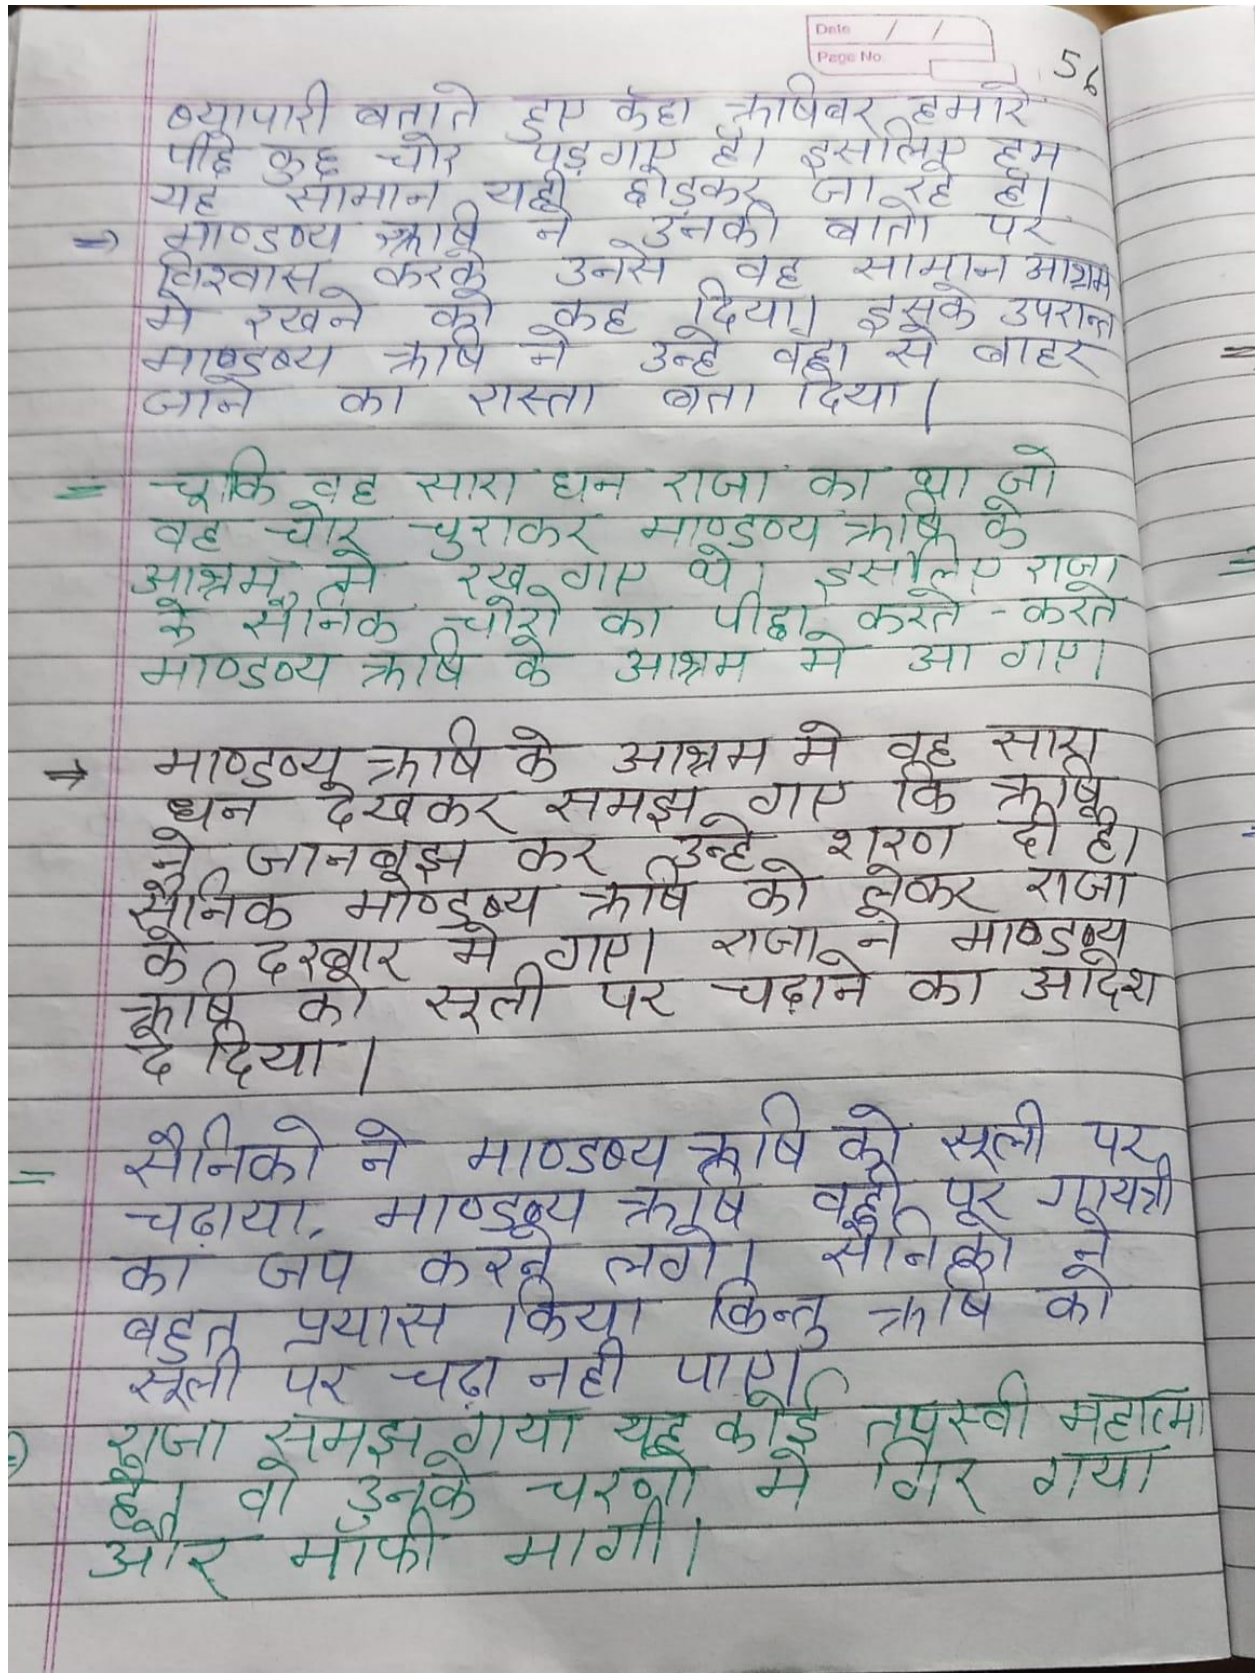 Date / /
Page No.
56
ब्यापारी बताते हुए कहा ऋषिवर हमारे
पीछे कुछ चोर पड़ गए है। इसलिए हम
यह सामान यही छोड़कर जा रहे है।
⇒ माण्डव्य ऋषि ने उनकी बातो पर
विश्वास करके उनसे वह सामान आश्रम
मे रखने को कह दिया। इसके उपरान्त
माण्डब्य ऋषि ने उन्हे वहा से बाहर
जाने का रास्ता बता दिया।
= चूकि वह सारा धन राजा का था जो
वह चोर चुराकर माण्डव्य ऋषि के
आश्रम मे रख गए थे। इसलिए राजा
के सैनिक चोरो का पीछा करते - करते
माण्डव्य ऋषि के आश्रम मे आ गए।
⇒ माण्डव्य ऋषि के आश्रम मे वह सारा
धन देखकर समझ गए कि ऋषि
ने जानबूझ कर उन्हे शरण दी है।
सैनिक माण्डब्य ऋषि को लेकर राजा
के दरबार मे गए। राजा ने माण्डव्य
ऋषि को सूली पर चढ़ाने का आदेश
दे दिया।
= सैनिको ने माण्डब्य ऋषि को सूली पर
चढ़ाया, माण्डव्य ऋषि वही पर गायत्री
का जप करने लगे। सैनिको ने
बहुत प्रयास किया किन्तु ऋषि को
सूली पर चढ़ा नही पाए।
राजा समझ गया यह कोई तपस्वी महात्मा
है। वो उनके चरणो मे गिर गया
और माँफी मागी।